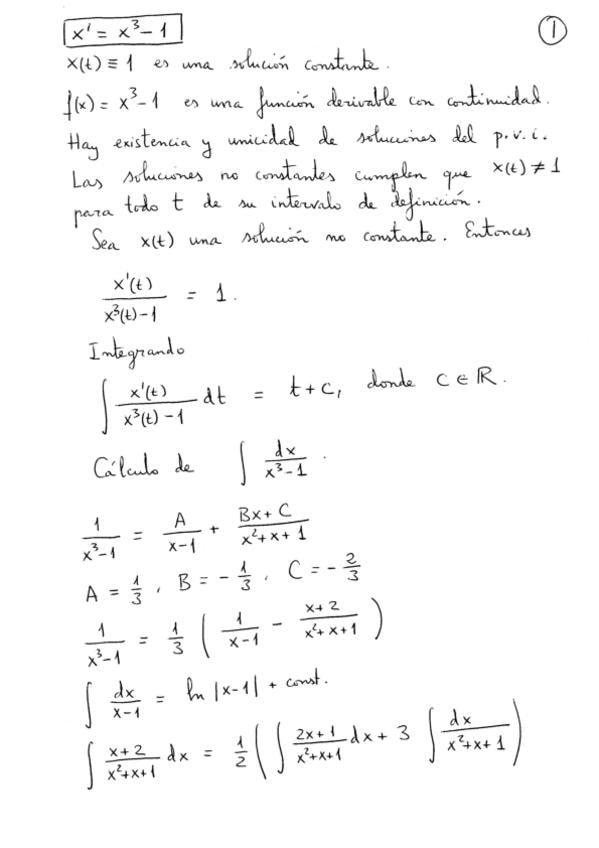 x' = x³ - 1
①
x(t) ≡ 1 es una solución constante.
f(x) = x³-1 es una función derivable con continuidad.
Hay existencia y unicidad de soluciones del p.v.i.
Las soluciones no constantes cumplen que x(t) ≠ 1
para todo t de su intervalo de definición.
Sea x(t) una solución no constante. Entonces
x'(t) / (x³(t)-1) = 1.
Integrando
∫ x'(t) / (x³(t)-1) dt = t+c, donde c ∈ ℝ.
Cálculo de ∫ dx / (x³-1).
1 / (x³-1) = A / (x-1) + (Bx+C) / (x²+x+1)
A = 1/3, B = -1/3, C = -2/3
1 / (x³-1) = 1/3 ( 1 / (x-1) - (x+2) / (x²+x+1) )
∫ dx / (x-1) = ln |x-1| + const.
∫ (x+2) / (x²+x+1) dx = 1/2 ( ∫ (2x+1) / (x²+x+1) dx + 3 ∫ dx / (x²+x+1) )